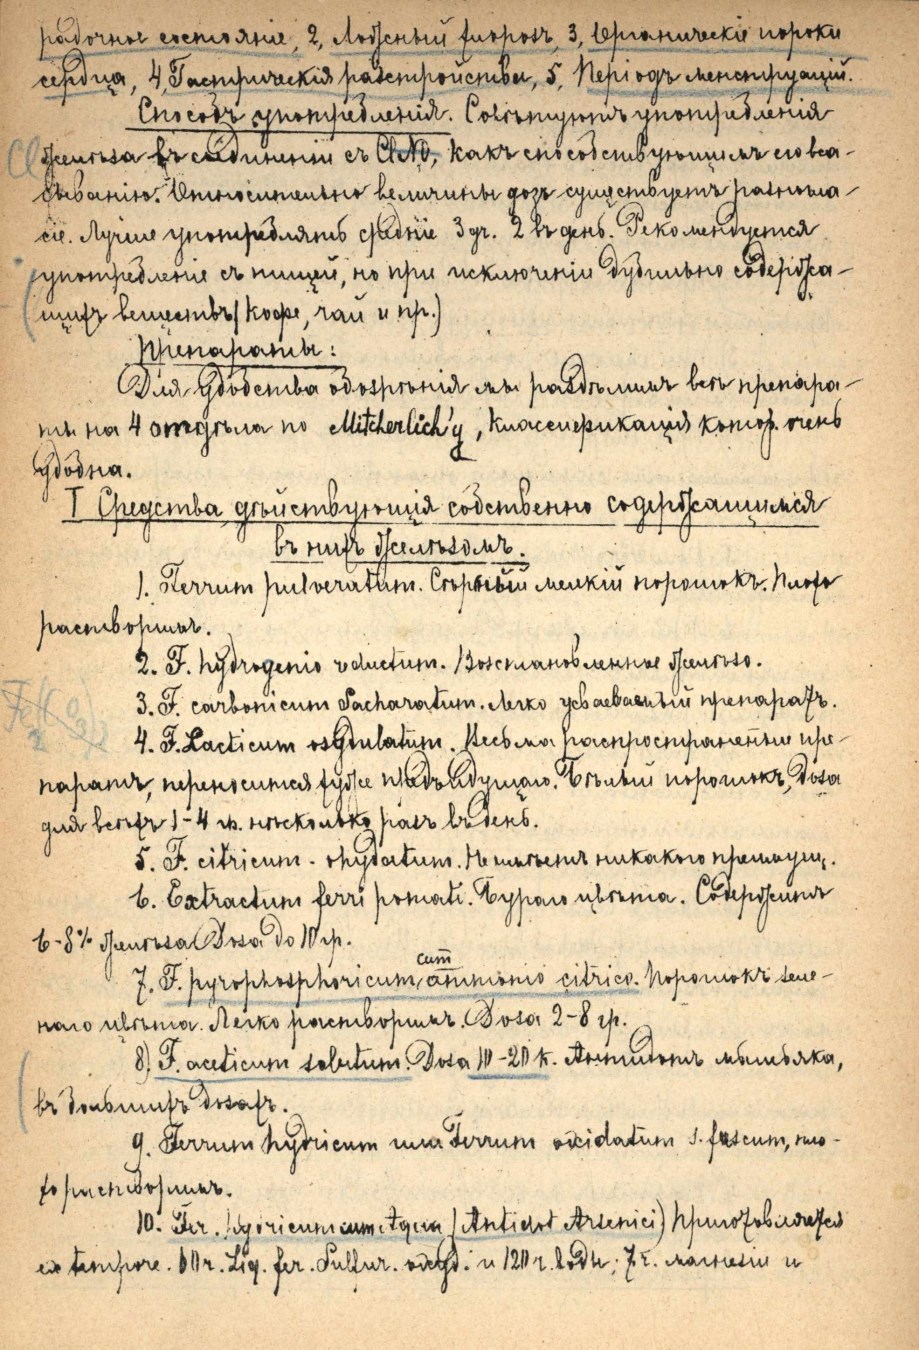 радочное состояніе, 2, Ложный хлорозъ, 3, Органическіе пороки
сердца, 4, Гастрическія разстройства, 5, Періодъ менструацій.
Способъ употребленія. Совѣтуютъ употребленія
желѣза въ соединеніи съ ClNa, какъ способствующимъ его вса-
сыванію. Относительно величины дозъ существуетъ разногла-
сіе. Лучше употреблять средніе 3 gr. 2 въ день. Рекомендуется
употребленіе съ пищей, но при исключеніи дубильно содержа-
щихъ веществъ (кофе, чай и пр.)
Препараты:
Для удобства обозрѣнія мы раздѣлимъ всѣ препара-
ты на 4 отдѣла по Mitcherlich'у, классификація котор. очень
удобна.
I Средства, дѣйствующія собственно содержащимся
въ нихъ желѣзомъ.
1. Ferrum pulveratum. Сѣрный мелкій порошокъ. Плохо
растворимъ.
2. F. hydrogenio reductum. Возстановленное желѣзо.
3. F. carbonicum Sacharatum. Легко усваеваемый препаратъ.
4. F. Lacticum oxydulatum. Весьма распространенные пре-
паратъ, переносится хуже предъидущаго. Бѣлый порошокъ, Dosa
для всѣхъ 1-4 гр. нѣсколько разъ въ день.
5. F. citricum - oxydatum. Не имѣетъ никакого преимущ.
6. Extractum ferri pomati. Бураго цвѣта. Содержитъ
6-8% желѣза Dosa до 10 гр.
7. F. pyrophosphoricum cum ammonio citrico. Порошокъ зеле-
наго цвѣта. Легко растворимъ. Dosa 2-8 гр.
8) F. aceticum solutum. Dosa 10-20 к. Антидотъ мышьяка,
въ большихъ дозахъ.
9. Ferrum hydricum или Ferrum oxidatum s. fuscum, пло-
хо растворимъ.
10. Fer. hydricum cum Aqua (Antidot Arsenici) Приготовляется
ex tempore. 60 г. Liq. fer. Sulfur. oxyd. и 120 г. воды; 7 г. магнезіи и